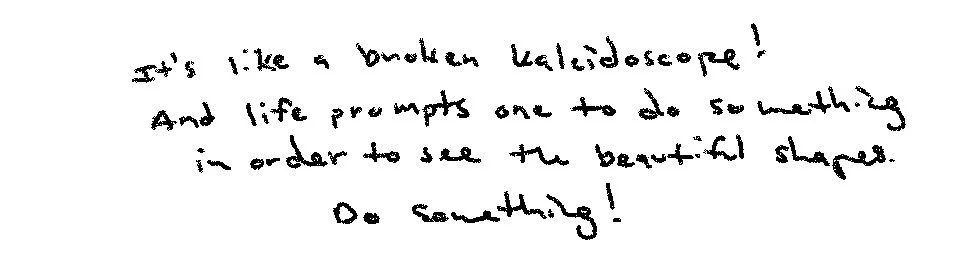 It's like a broken kaleidoscope!
And life prompts one to do something
in order to see the beautiful shapes.
Do something!